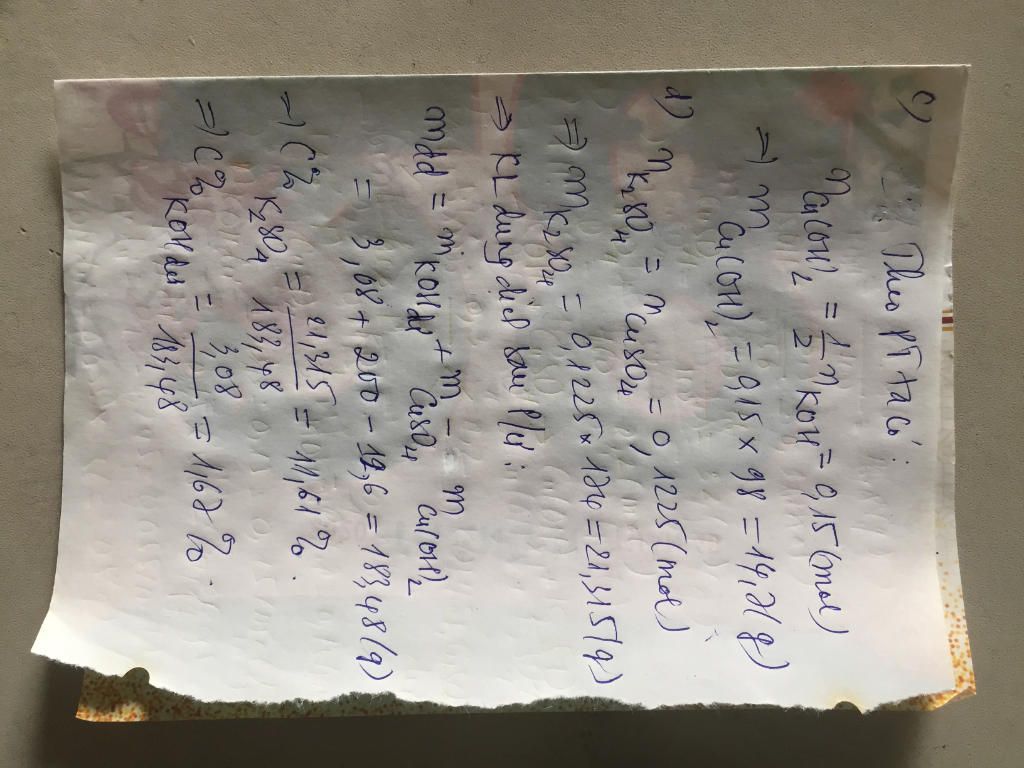 c) Theo PT ta có:
n Cu(OH)2 = 1/2 n KOH = 0,15 (mol)
=> m Cu(OH)2 = 0,15 × 98 = 14,7 (g)
d) n K2SO4 = n CuSO4 = 0,1225 (mol)
=> m K2SO4 = 0,1225 × 174 = 21,315 (g)
=> KL dung dịch sau p/ư:
mdd = m KOH dư + m CuSO4 - m Cu(OH)2
= 3,08 + 200 - 19,6 = 183,48 (g)
=> C% K2SO4 = 21,315/183,48 = 11,61%.
=> C% KOH dư = 3,08/183,48 = 1,67%.